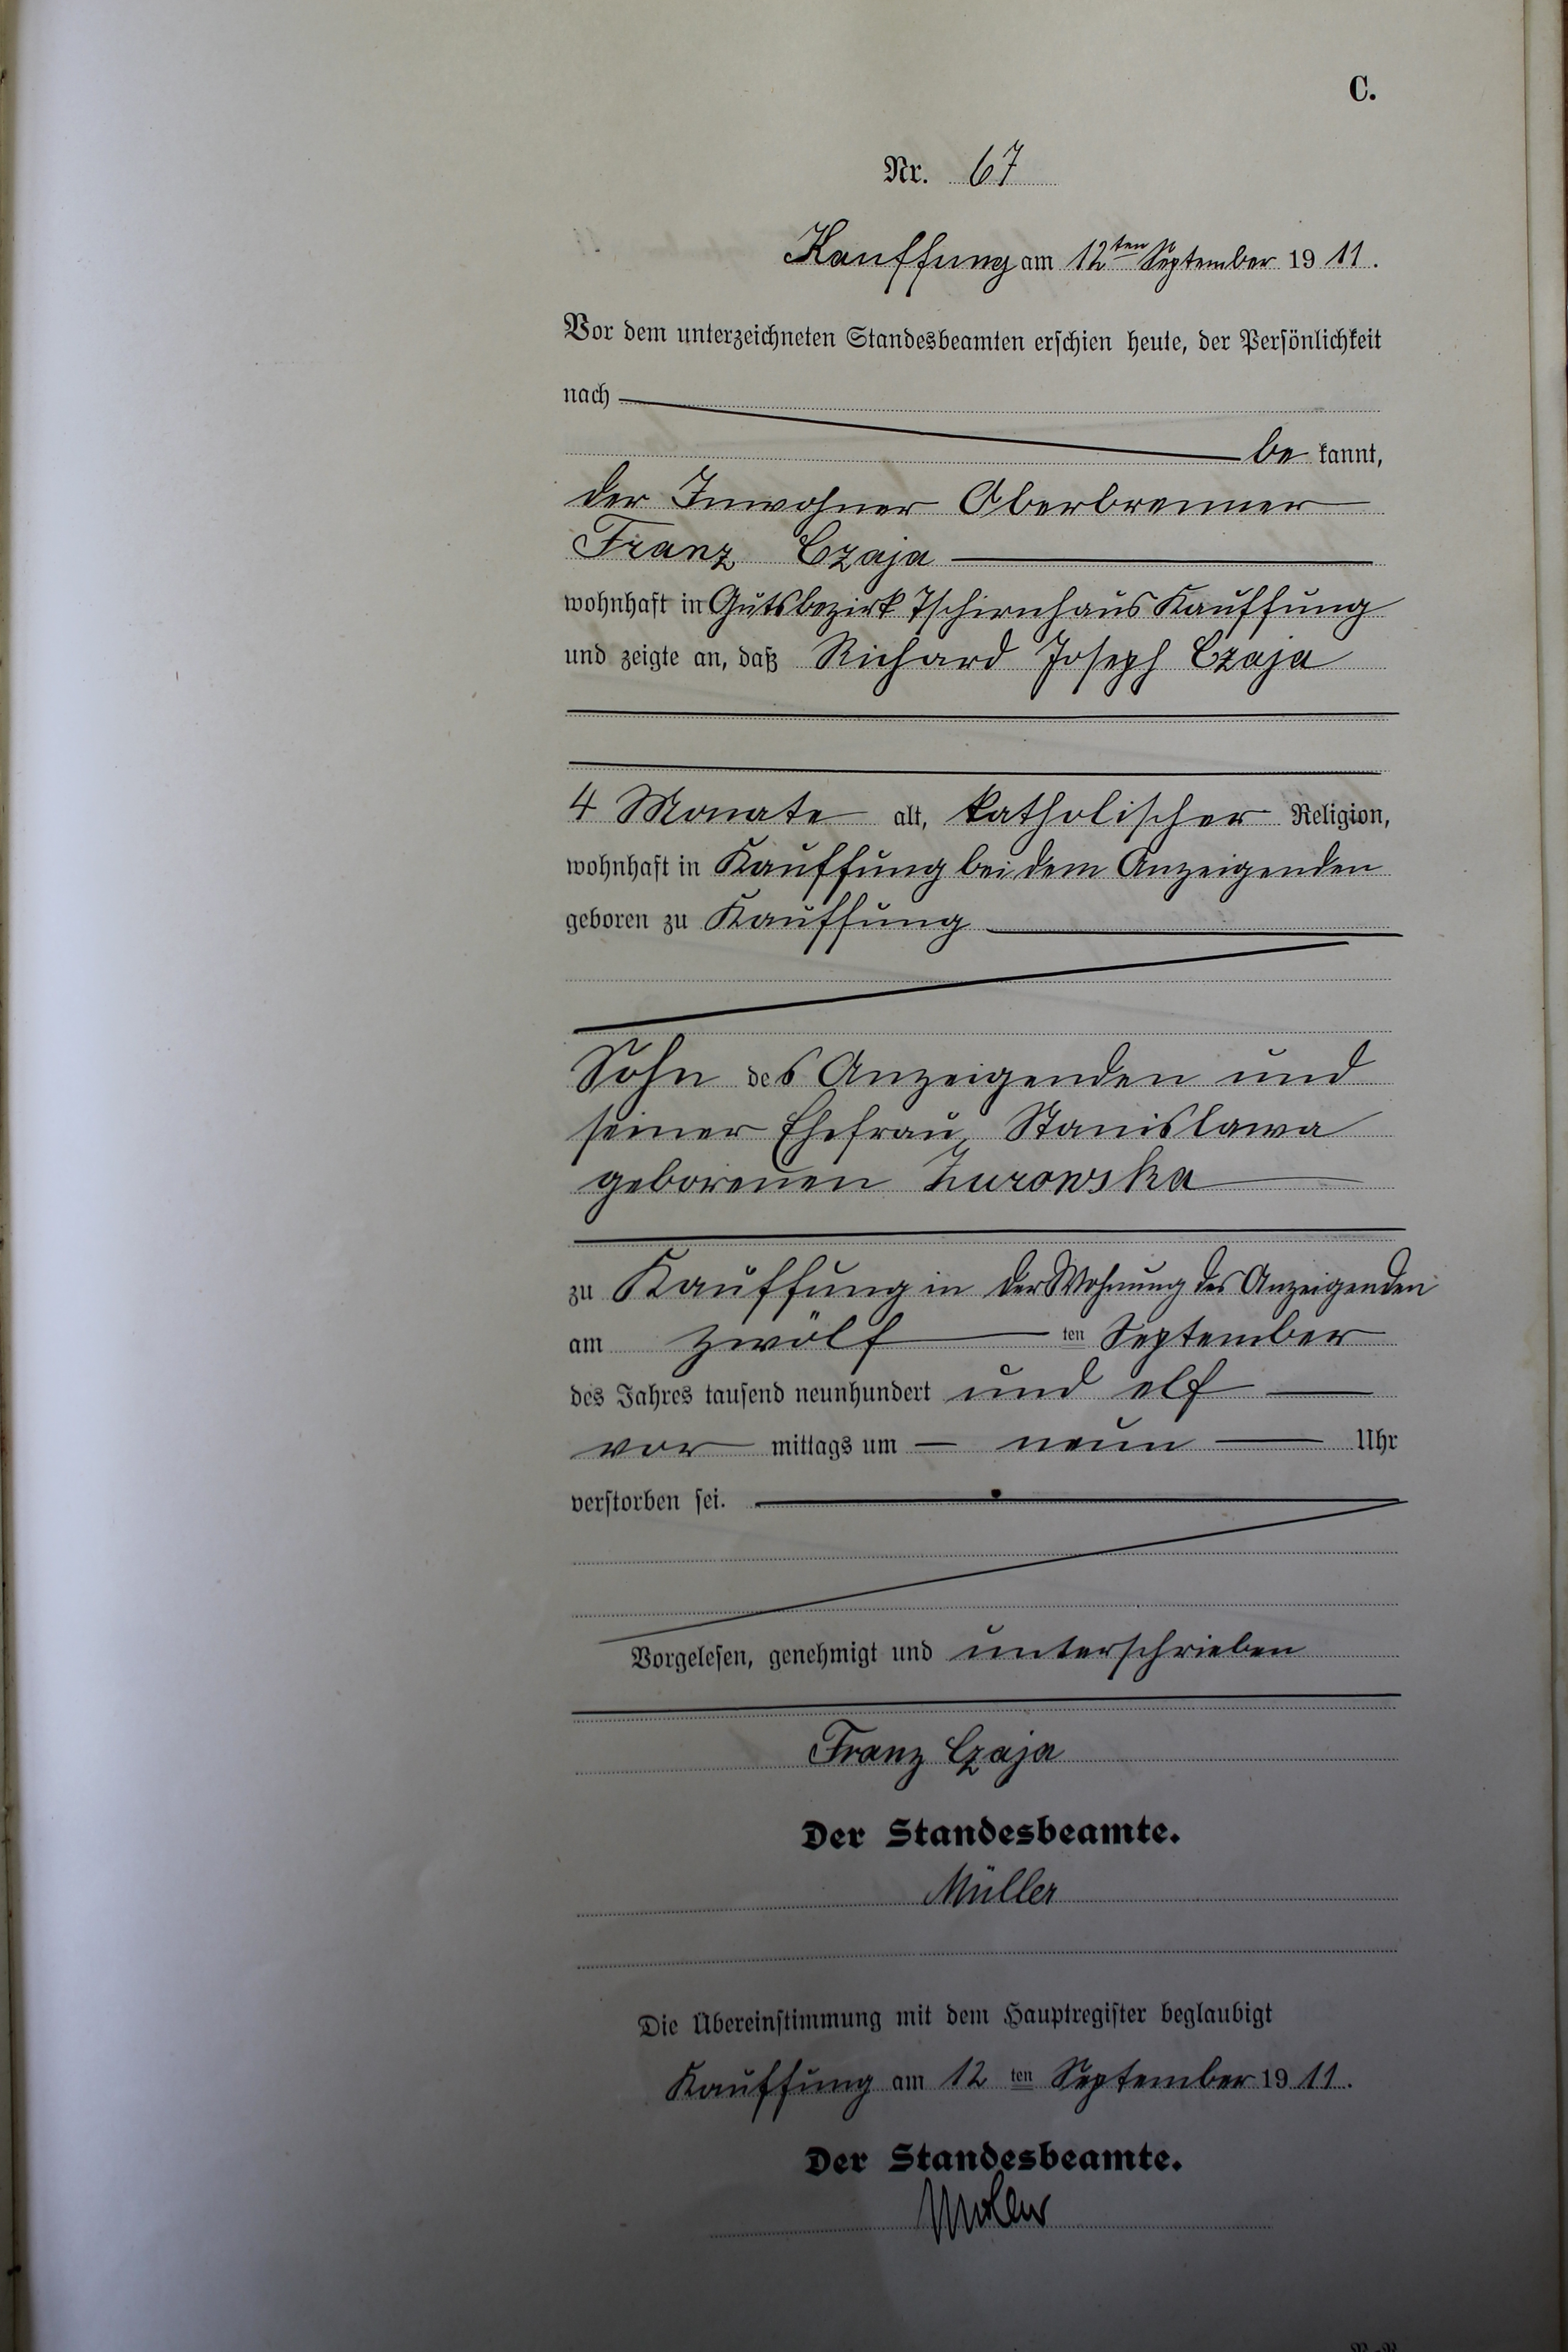 C.
Nr. 67
Kauffung am 12ten September 19 11.
Vor dem unterzeichneten Standesbeamten erschien heute, der Persönlichkeit
nach
be kannt,
der Inwohner Oberbrenner
Franz Czaja
wohnhaft in Gutsbezirk Tschirnhaus Kauffung
und zeigte an, daß Richard Joseph Czaja
4 Monate alt, katholischer Religion,
wohnhaft in Kauffung bei dem Anzeigenden
geboren zu Kauffung
Sohn des Anzeigenden und
seiner Ehefrau, Stanislawa
geborenen Zurowska
zu Kauffung in der Wohnung des Anzeigenden
am zwölf ten September
des Jahres tausend neunhundert und elf
vor mittags um neun Uhr
verstorben sei.
Vorgelesen, genehmigt und unterschrieben
Franz Czaja
Der Standesbeamte.
Müller
Die Übereinstimmung mit dem Hauptregister beglaubigt
Kauffung am 12 ten September 19 11.
Der Standesbeamte.